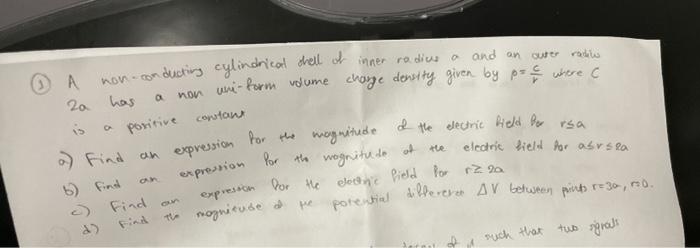 ① A non-conducting cylindrical shell of inner radius a and an outer radius
2a has a non uni-form volume charge density given by ρ = c/r where C
is a positive constant
a) Find an expression for the magnitude of the electric field for r≤a
b) Find an expression for the magnitude of the electric field for a≤r≤2a
c) Find an expression for the electric field for r≥2a
d) Find the magnitude of the potential difference ΔV between points r=3a, r=0.
of d such that two signals